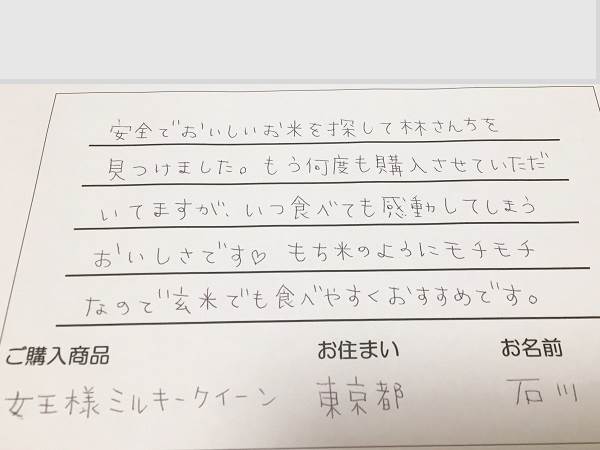 安全でおいしいお米を探して林さんちを
見つけました。もう何度も購入させていただ
いてますが、いつ食べても感動してしまう
おいしさです♡ もち米のようにモチモチ
なので玄米でも食べやすくおすすめです。
ご購入商品 お住まい お名前
女王様ミルキークイーン 東京都 石川